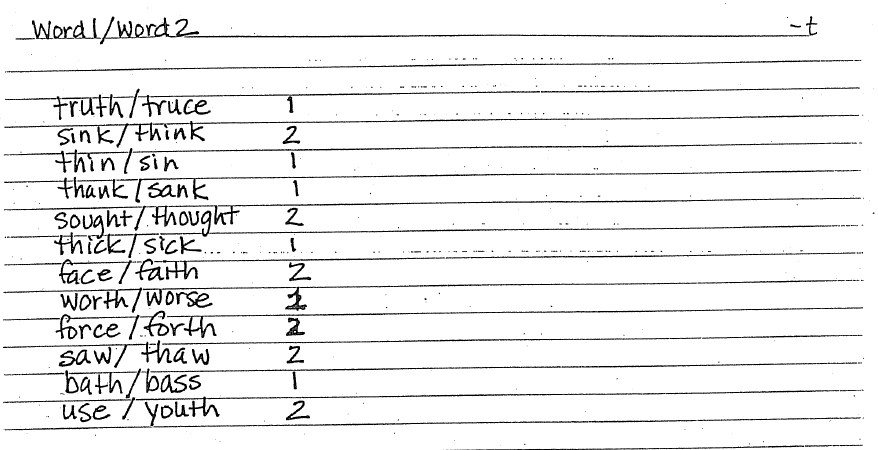 Word1/Word2 -t
truth/truce 1
sink/think 2
thin/sin 1
thank/sank 1
sought/thought 2
thick/sick 1
face/faith 2
worth/worse 1
force/forth 2
saw/thaw 2
bath/bass 1
use/youth 2